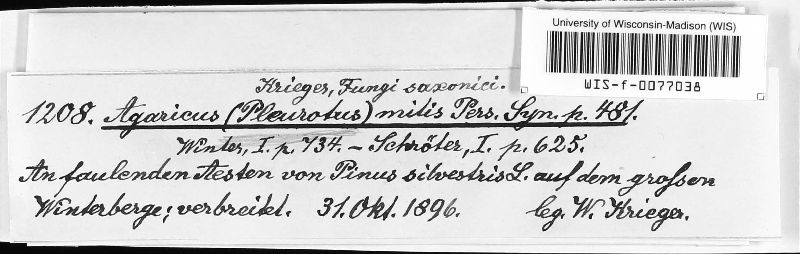 University of Wisconsin-Madison (WIS)
WIS-f-0077038
Krieger, Fungi saxonici.
1208. Agaricus (Pleurotus) mitis Pers. Syn. p. 481.
Winter, I. p. 734. – Schröter, I. p. 625.
An faulenden Aesten von Pinus silvestris L. auf dem großen
Winterberge; verbreitet. 31. Okt. 1896. leg. W. Krieger.